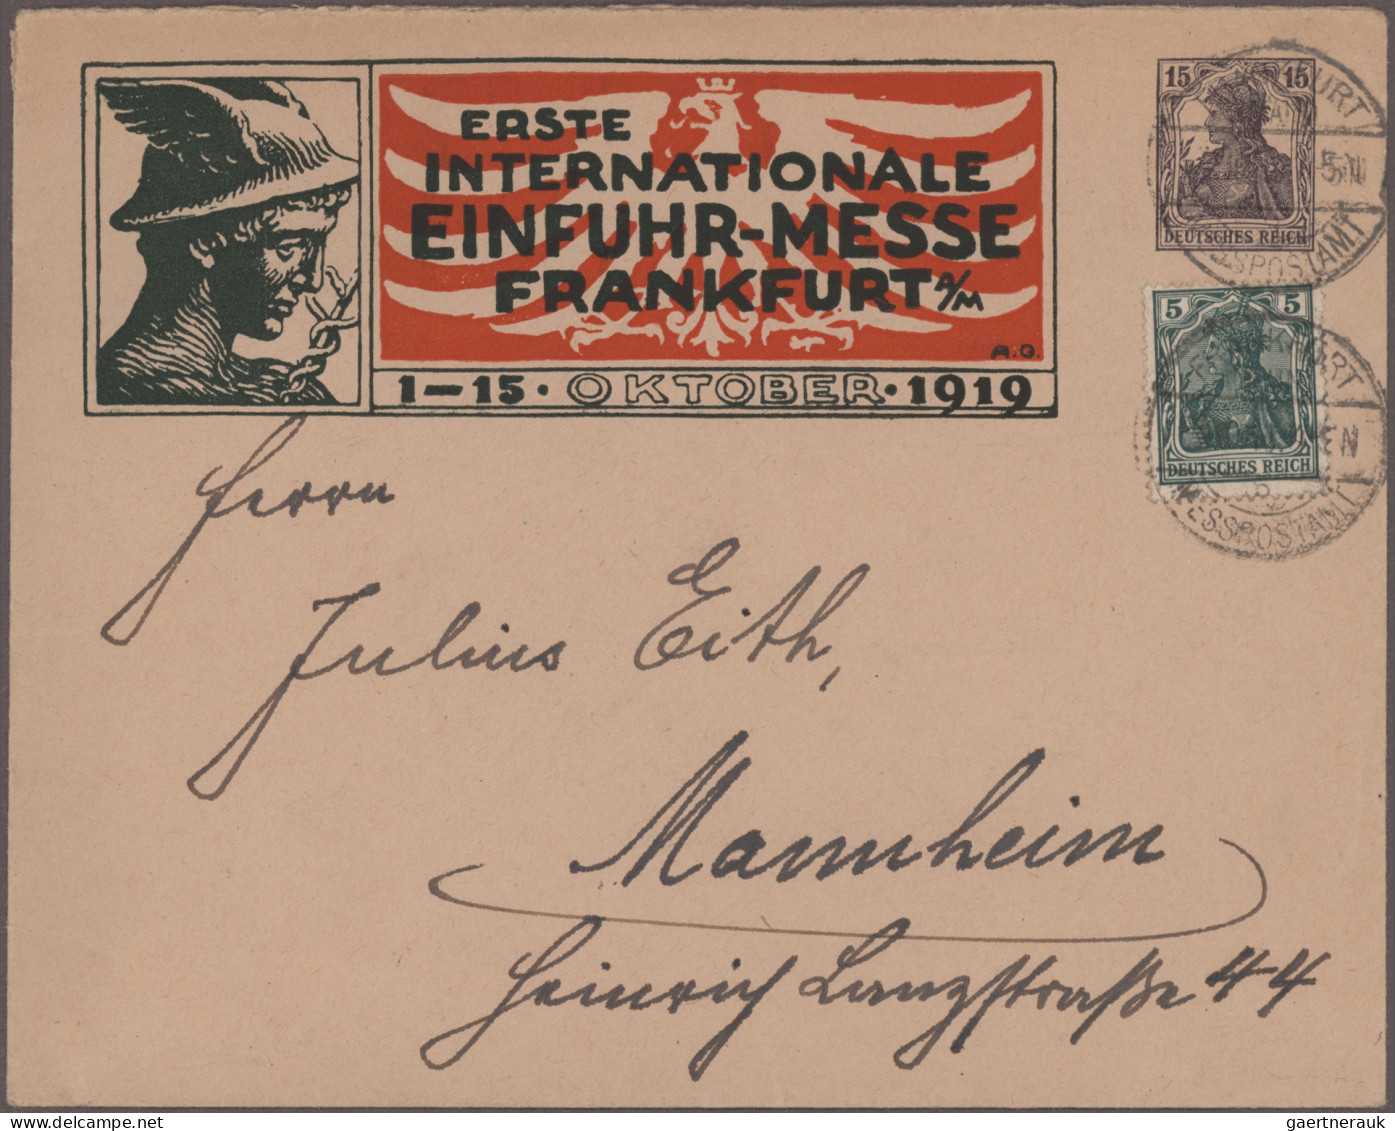 ERSTE
INTERNATIONALE
EINFUHR-MESSE
FRANKFURT A/M
A.O.
1-15. OKTOBER. 1919
15 15
DEUTSCHES REICH
5 5
DEUTSCHES REICH
MESSPOSTAMT
Herrn
Julius Eith,
Mannheim
Heinrich Lanzstraße 44
gaertnerauk